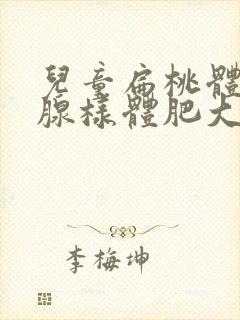 兒童扁桃體
腺樣體肥大
李梅坤